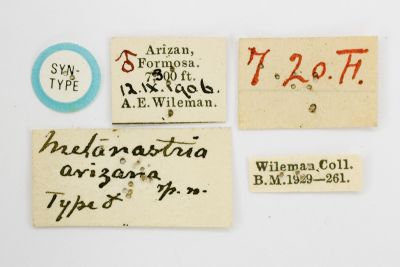 SYN-
TYPE
♂ Arizan,
Formosa.
7,300 ft.
12.IX.1906.
A. E. Wileman.
7. 20. H.
Melanastria
arizana
sp. n.
Type ♂
Wileman Coll.
B.M.1929—261.